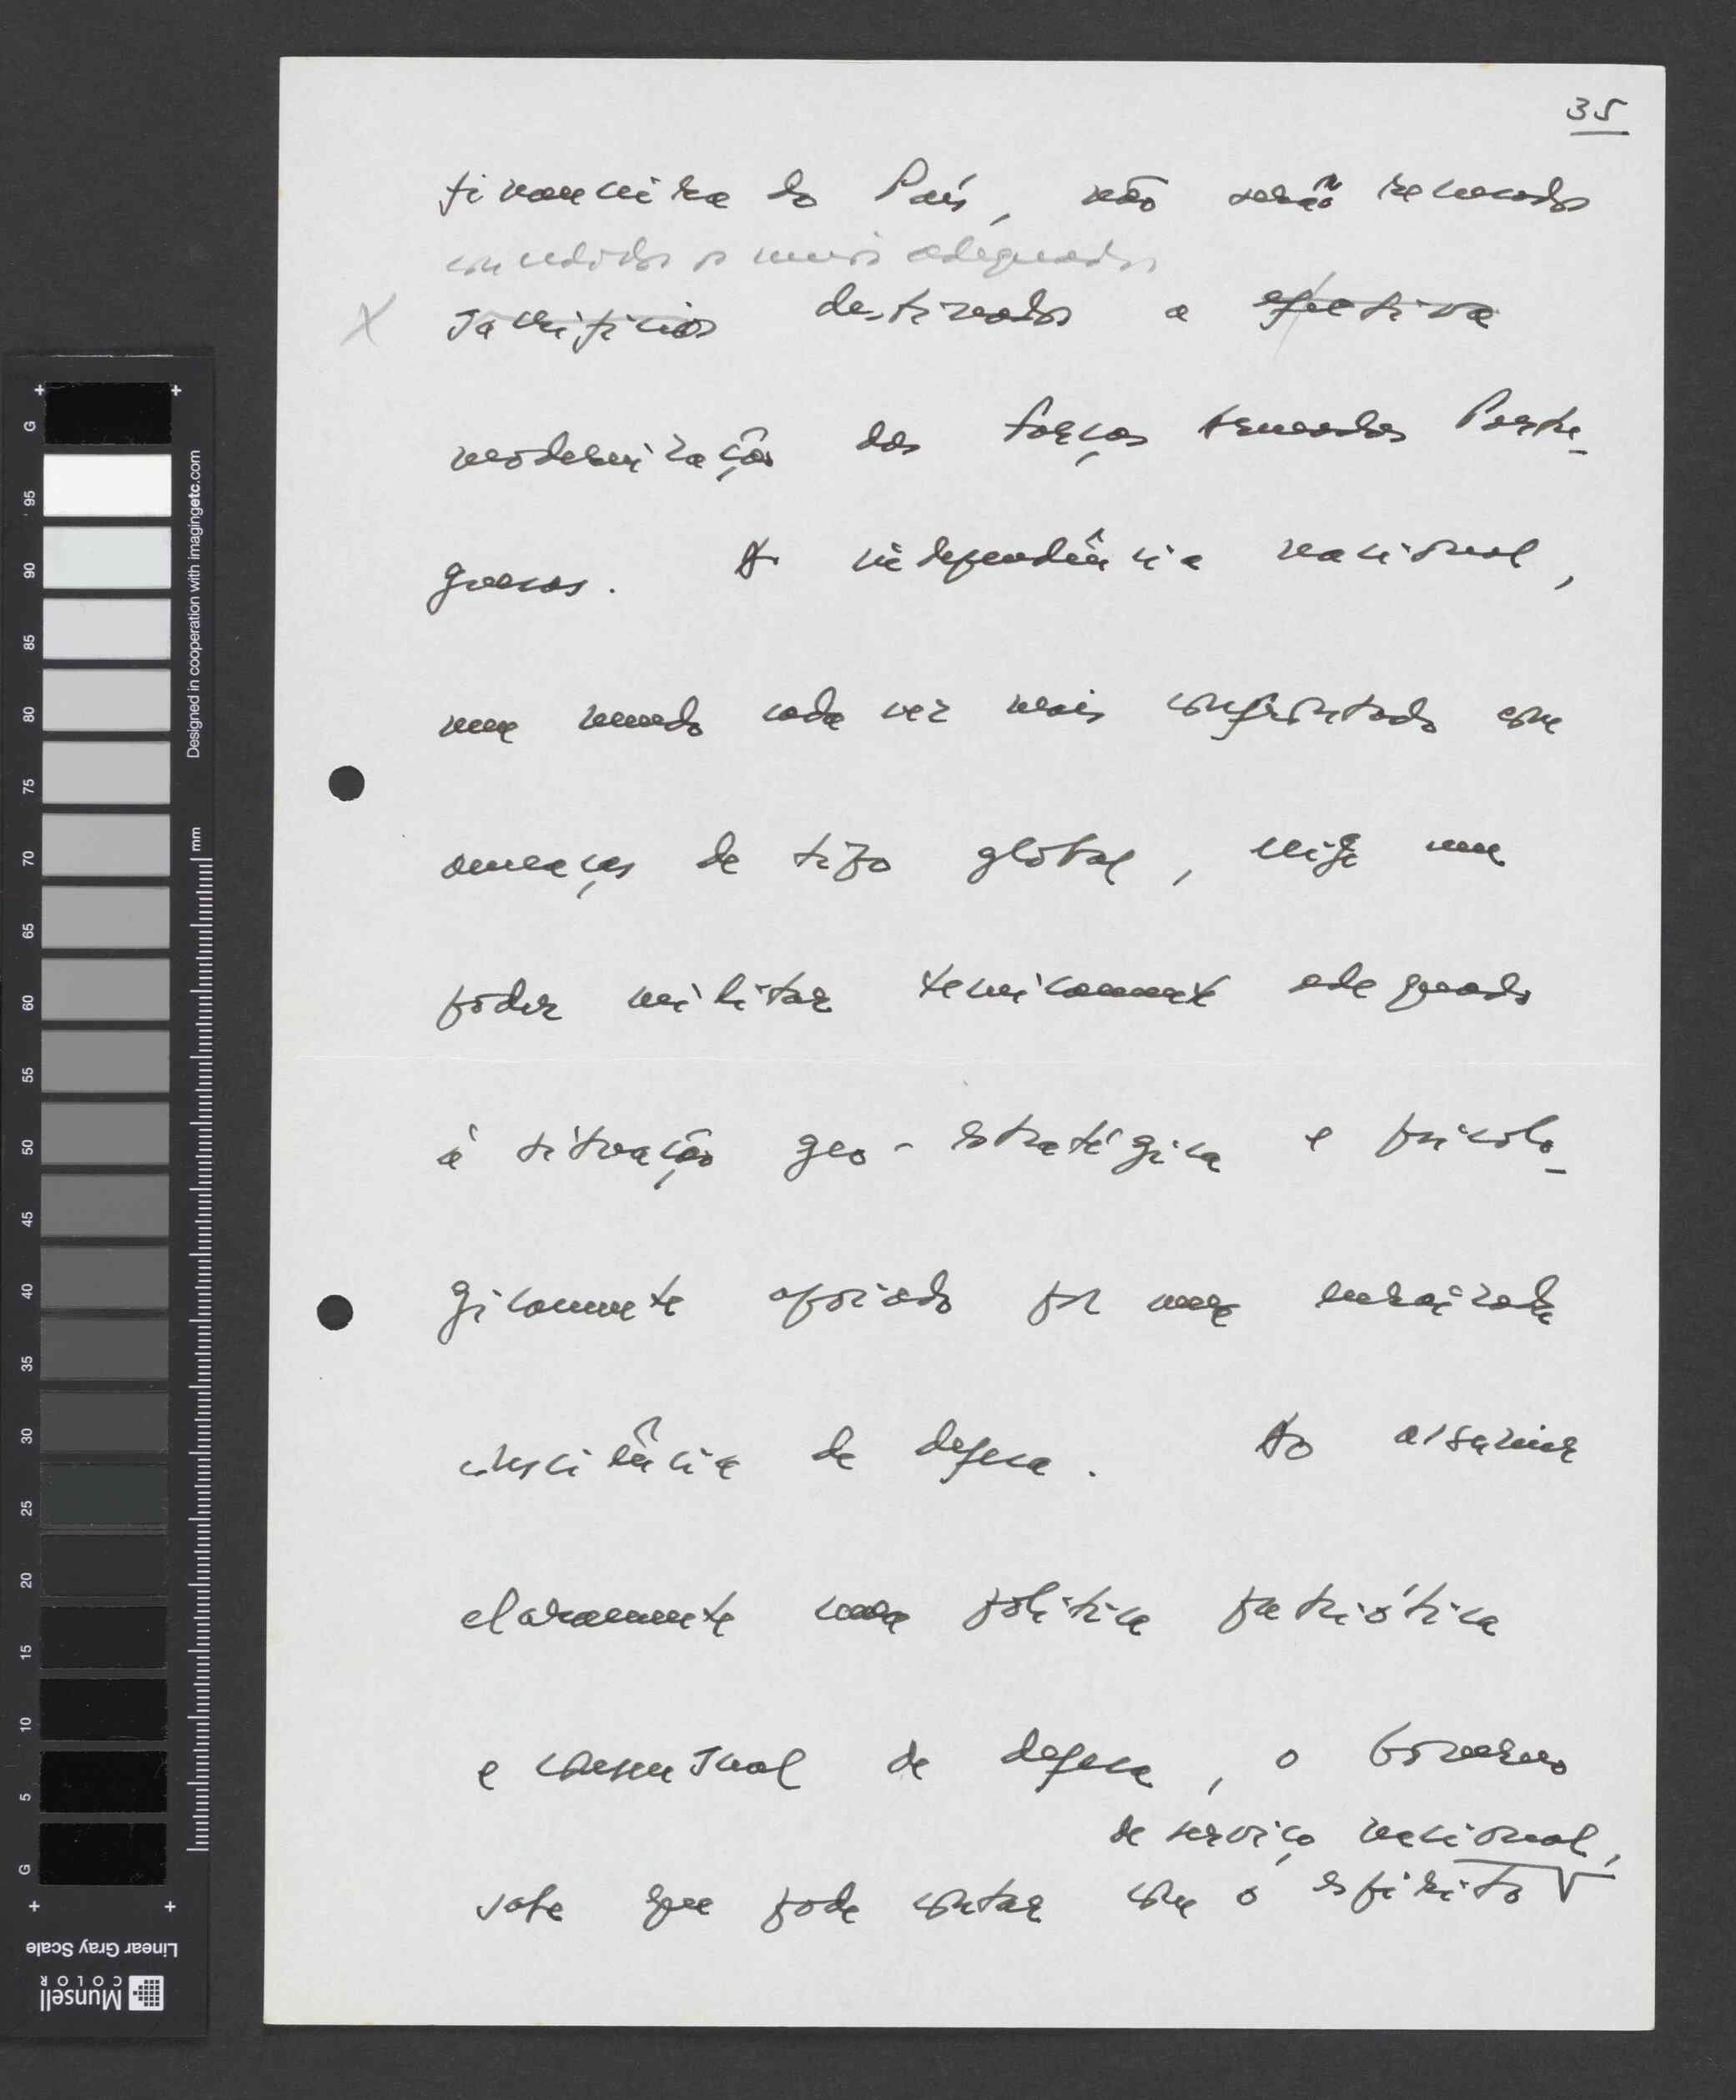 35
financeira do País, não serão recusados
concedidos os meios adequados
X sacrifícios destinados a efectiva
modernização das Forças Armadas Portu-
guesas. A independência nacional,
num mundo cada vez mais confrontado com
ameaças de tipo global, exige um
poder militar tecnicamente adequado
à situação geo-estratégica e psicolo-
gicamente apoiado por uma enraizada
consciência de defesa. Ao assumir
claramente uma política patriótica
e consensual de defesa, o Governo
de serviço nacional,
sabe que pode contar com o espírito
G
95
90
85
80
75
70
65
60
55
50
45
40
35
30
25
20
15
10
5
G
Designed in cooperation with imagingetc.com
mm
Linear Gray Scale
Munsell
COLOR